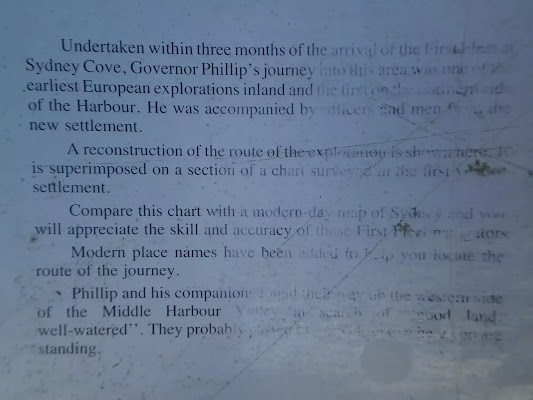 Undertaken within three months of the arrival of the First Fleet at
Sydney Cove, Governor Phillip's journey into this area was one of the
earliest European explorations inland and the first on the northern side
of the Harbour. He was accompanied by officers and men from the
new settlement.
A reconstruction of the route of the exploration is shown here. It
is superimposed on a section of a chart surveyed in the first
settlement.
Compare this chart with a modern-day map of Sydney and you
will appreciate the skill and accuracy of those First Fleet navigators
Modern place names have been added to help you locate the
route of the journey.
Phillip and his companions found their way up the western side
of the Middle Harbour Valley in search of "good land,
well-watered". They probably
standing.